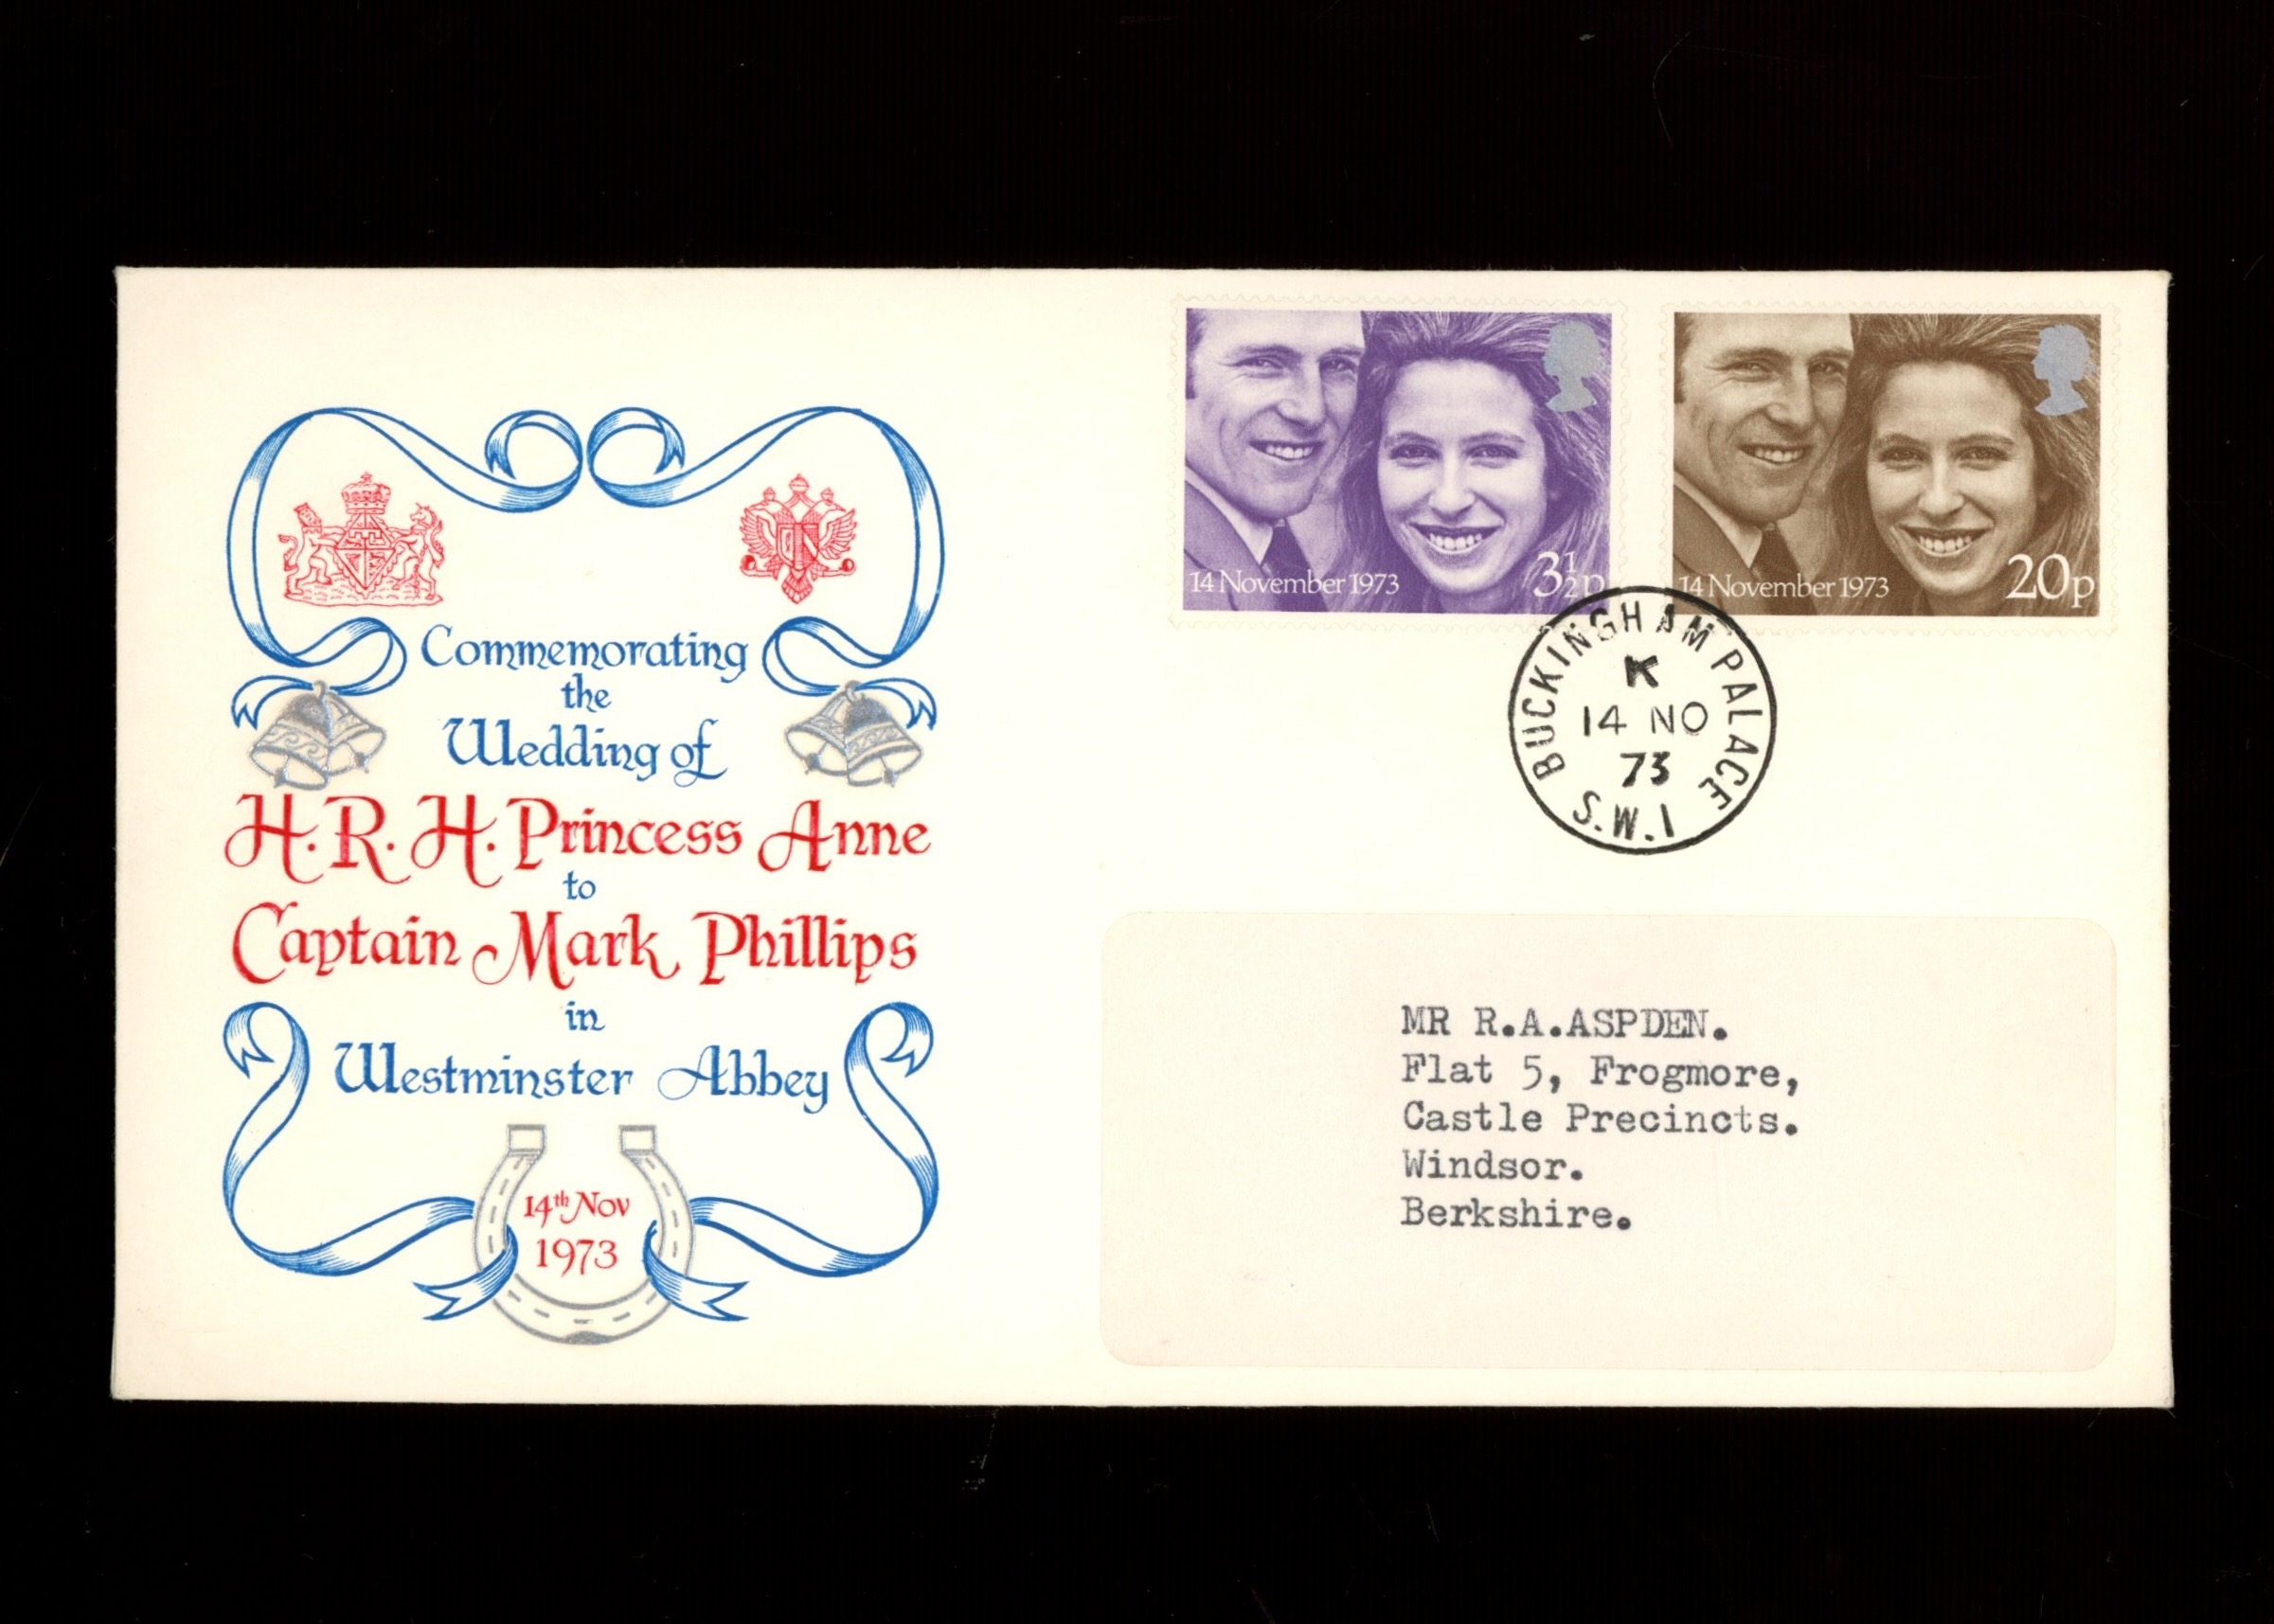 Commemorating
the
Wedding of
H.R.H. Princess Anne
to
Captain Mark Phillips
in
Westminster Abbey
14th Nov
1973
14 November 1973 3½p
14 November 1973 20p
BUCKINGHAM PALACE
K
14 NO
73
S.W.1
MR R.A.ASPDEN.
Flat 5, Frogmore,
Castle Precincts.
Windsor.
Berkshire.